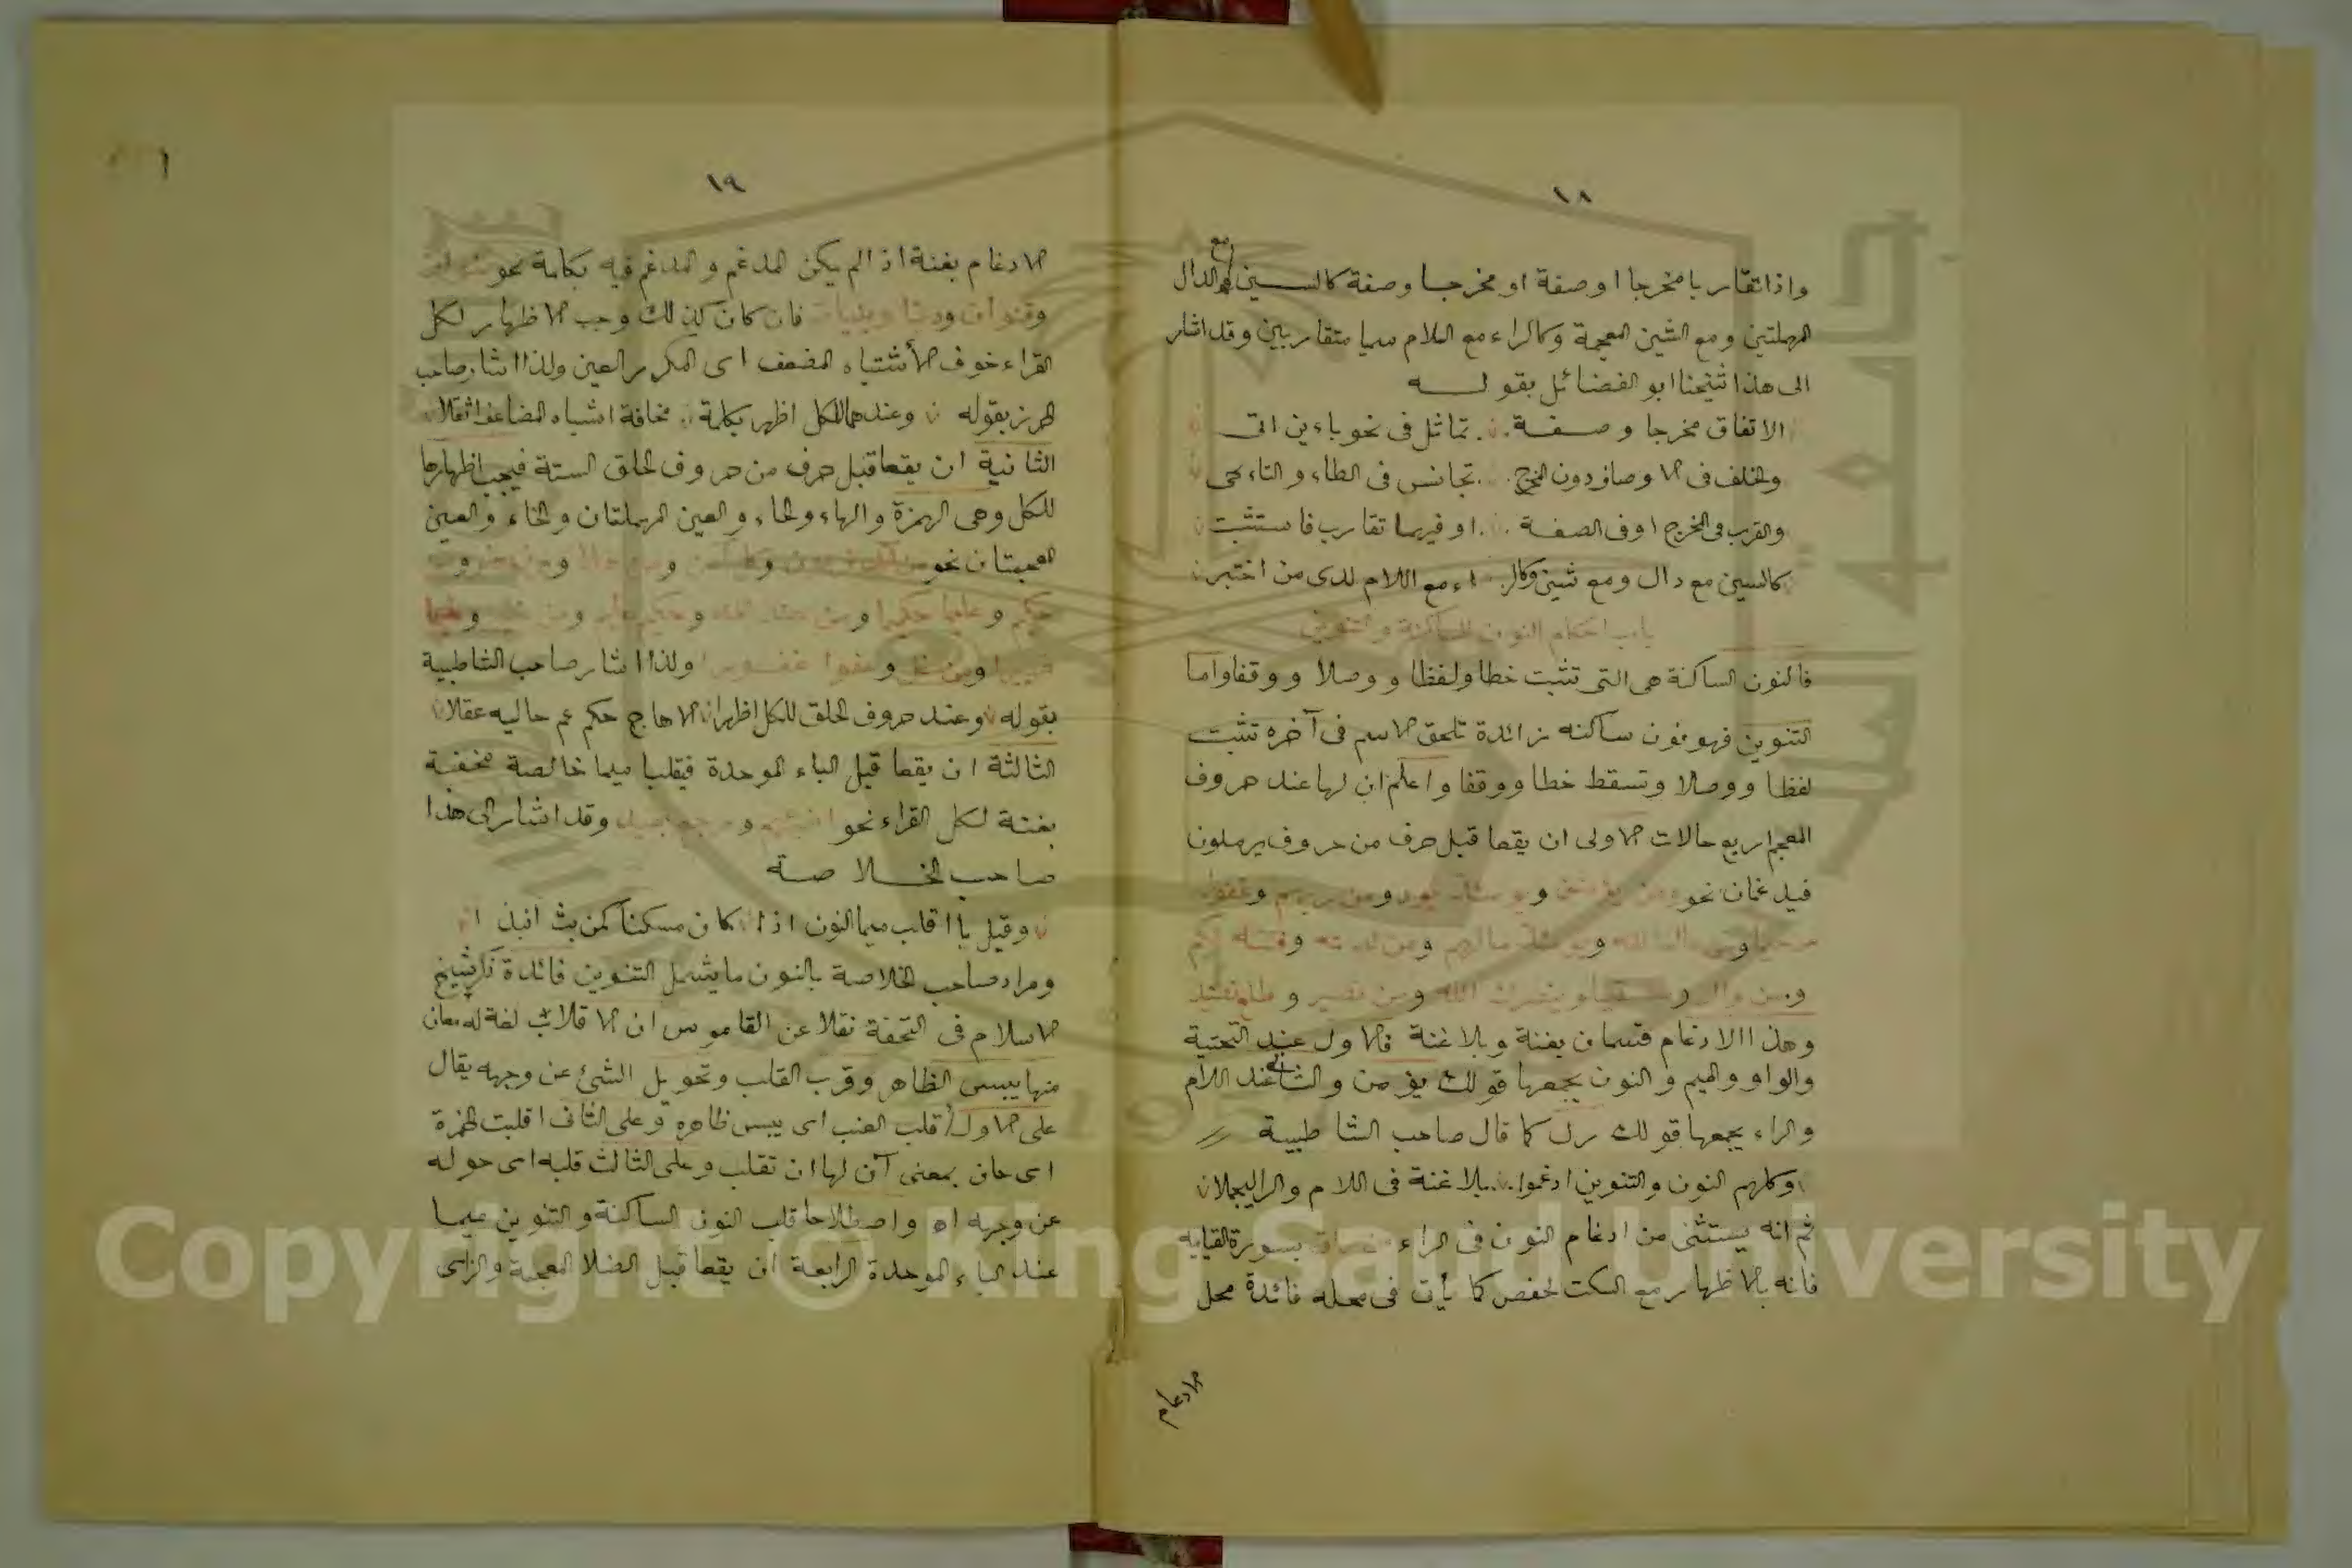 ١٨
واذا تقاربا مخرجا او صفة او مخرجا وصفة كالسين مع الدال
المهملتين ومع الشين المعجمة وكالراء مع اللام سميا متقاربين وقد اشار
الى هذا شيخنا ابو الفضائل بقوله
الاتفاق مخرجا وصفة تماثل فى نحو باءين اتى
والخلف فى الاوصاف دون المخرج تجانس فى الطاء والتاء يجى
والقرب فى المخرج اوفى الصفة اوفيهما تقارب فاستثبت
كالسين مع دال ومع شين وكالراء مع اللام لدى من اختبر
باب احكام النون الساكنة والتنوين
فالنون الساكنة هى التى تثبت خطا ولفظا ووصلا ووقفا واما
التنوين فهو نون ساكنه زائدة تلحق الاسم فى آخره تثبت
لفظا ووصلا وتسقط خطا ووقفا واعلم ان لها عند حروف
المعجم اربع حالات الاولى ان يقعا قبل حرف من حروف يرملون
فيدغمان نحو
وهذا الادغام قسمان بغنة وبلا غنة فالاول عند التحتية
والواو والميم والنون يجمعها قولك يؤمن والثانى عند اللام
والراء يجمعها قولك رل كما قال صاحب الشاطبية
وكلهم النون والتنوين ادغموا بلا غنة فى اللام والرا ليجملا
ثم انه يستثنى من ادغام النون فى الراء بسورة القيامه
فانه بالاظهار مع السكت لحفص كما يأتى فى محله فائدة محل
الادغام
١٩
الادغام بغنة اذا لم يكن المدغم والمدغم فيه بكلمة نحو
وقنوان ودنيا وبنيان فان كان كذلك وجب الاظهار لكل
القراء خوف الاشتباه المضعف اى المكرر العين ولذا اشار صاحب
الحرز بقوله وعندهما للكل اظهر بكلمة مخافة اشباه المضاعف اثقلا
الثانية ان يقعا قبل حرف من حروف الحلق الستة فيجب اظهارها
للكل وهى الهمزة والهاء والحاء والعين المهملتان والخاء والغين
المعجمتان نحو
ولذا اشار صاحب الشاطبية
بقوله وعند حروف الحلق للكل اظهرا الا هاج حكم عم خاليه غفلا
الثالثة ان يقعا قبل الباء الموحدة فيقلبا ميما خالصة مخفية
بغنة لكل القراء نحو وقد اشار الى هذا
صاحب الخلاصة
وقبل با اقلب ميما النون اذا كان مسكنا كمن بث انبذا
ومراد صاحب الخلاصة بالنون ما يشمل التنوين فائدة ذكر شيخ
الاسلام فى التحفة نقلا عن القاموس ان الاقلاب لغة له معان
منها يبس الظاهر وقرب القلب وتحويل الشئ عن وجهه يقال
على الاول اقلب العنب اى يبس ظاهره وعلى الثانى اقلبت الخبزة
اى حان بمعنى آن لها ان تقلب وعلى الثالث قلبه اى حوله
عن وجهه اه واصطلاحا قلب النون الساكنة والتنوين ميما
عند الباء الموحدة الرابعة ان يقعا قبل الضاد المعجمة والزاى
Copyright © King Saud University